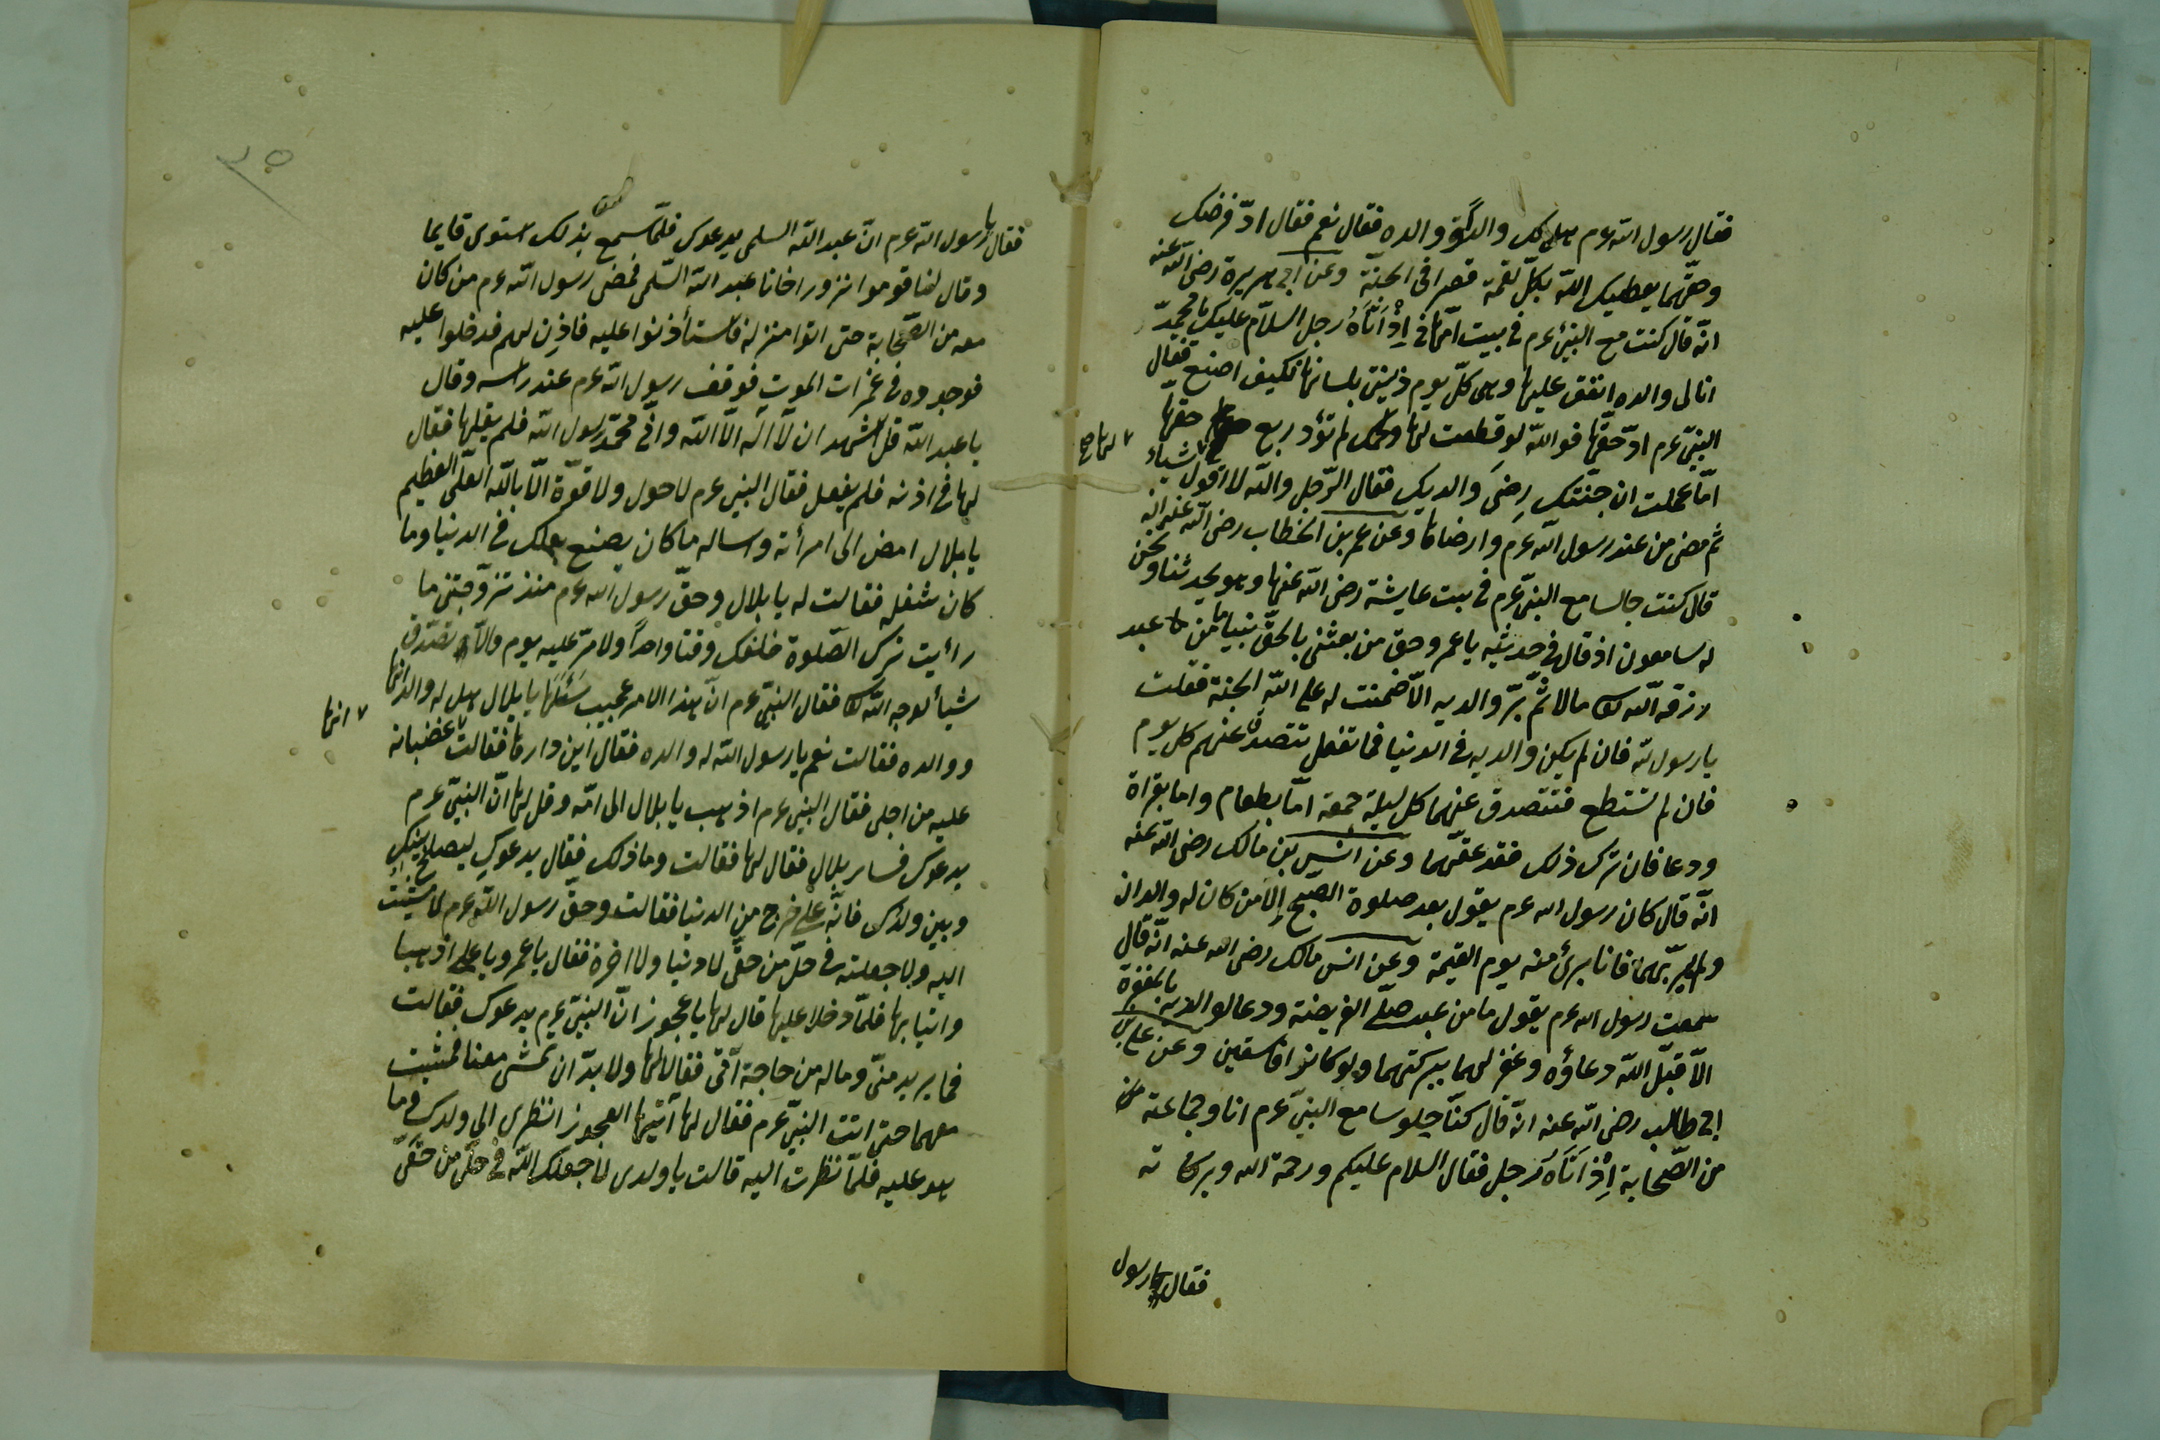 فقال رسول الله عم هل لك والدة ووالده فقال نعم فقال ادّ فرضك
وحقهما يعطيك الله بكلّ لقمة قصرا فى الجنّة وعن ابى هريرة رضى الله عنه
انّه قال كنت مع النبىّ عم فى بيت امّهانى اِذْ اَتَاهُ رجل السلام عليك يا محمّد
انا لى والده انفق عليها وهى كلّ يوم ذيتنى بلسانها فكيف اصنع فقال
النبىّ عم ادّ حقّها فوالله لو قطعت لها لحمك لم تؤد ربع حقّها
امّا علمت ان جنّتك رِضىَ والديك فقال الرّجل والله لا اقول لها شياء
لها صح
ثم مضى من عند رسول الله عم وارضاها وعن عمر بن الخطاب رضى الله عنه انه
قال كنت جالسا مع النبىّ عم فى بيت عايشة رضى الله عنها وهو يحدثنا ونحن
له سامعون اذ قال فى حديثه يا عمر وحق من بعثنى بالحقّ نبيا ما من عبد
رزقه الله مالا ثمّ برّ والديه الّا ضمنت له على الله الجنة فقلت
يا رسول الله فان لم يكن والديه فى الدنيا فما تفعل تتصدق عنهم كل يوم
فان لم تستطع فتتصدق عنهما كل ليلة جمعة امّا بطعام واما بقراة
ودعا فان ترك ذلك فقد عقّهما وعن انس بن مالك رضى الله عنه
انّه قال كان رسول الله عم يقول بعد صلوة الصبح اِلا من كان له والدان
ولم يبرّهما فانا برئ منه يوم القيمة وعن انس مالك رضى الله عنه انّه قال
سمعت رسول الله عم يقول ما من عبد صلّى الفريضة ودعا لوالديه بالمغفرة
الّا قبّل الله دعاؤه وغفر لهما ببركتهما ولو كانوا فاسقين وعن على بن
ابى طالب رضى الله عنه انّه قال كنّا جلوسا مع النبىّ عم انا وجماعة من
من الصّحابة اِذْ اَتَاهُ رجل فقال السلام عليكم ورحمة الله وبركاته
فقال يا رسول
٣٥
فقال يا رسول الله عم انّ عبد الله السلمى يدعوك فلمّا سمع بذلك استوى قايما
وقال لنا قوموا نزور اخانا عبد الله السّلمى فمضى رسول الله عم من كان
معه من الصّحابة حتى اتوا منزله فاستأذنوا عليه فاذن لهم فدخلوا عليه
فوجدوه فى غمرات الموت فوقف رسول الله عم عند راسه وقال
يا عبد الله قل اشهد ان لّا اله الّا الله وانّى محمّد رسول الله فلم يقلها فقال
لها فى اذنه فلم يفعل فقال النبى عم لا حول ولا قوّة الّا بالله العلّى العظيم
يا بلال امض الى امرأته واساله ما كان يصنع بعلك فى الدنيا وما
كان شغله فقالت له يا بلال وحقّ رسول الله عم منذ تزوّجتنى ما
رأيت ترك الصّلوة خلفك وقتا واحداً ولا مرّ عليه يوم والّا تصّدق
شيأ لوجه الله فقال النبىّ عم انّ هذا الامر عجيب سَئَلَهَا يا بلال هل له والدة
ووالده فقالت نعم يا رسول الله له والده فقال اين دارها فقالت غضبانه
انها
عليه من اجلى فقال النبى عم اذهب يا بلال الى امّه وقل لها انّ النبىّ عم
يدعوك فسار بلال فقال لها فقالت وما ذلك فقال يدعوك ليصلح بينك
وبين ولدك فانّه على خرج من الدنيا فقالت وحقّ رسول الله عم لا مشيت
اليه ولا جعلته فى حلّ من حقّى لا دنيا ولا اخرة فقال يا عمر ويا على اذهبا
واتيا بها فلمّا دخلا عليها قال لها يا عجوز انّ النبىّ عم يدعوك فقالت
فما يريد منىّ وما له من حاجة آتى فقالا لها ولا بدّ ان تمشى معنا فمشيت
معهما حتى اتت النبىّ عم فقال لها آيتها العجوز انظرى الى ولدك فيما
هو عليه فلمّا نظرت اليه قالت يا ولدى لا جعلك الله فى حلّ من حقّى